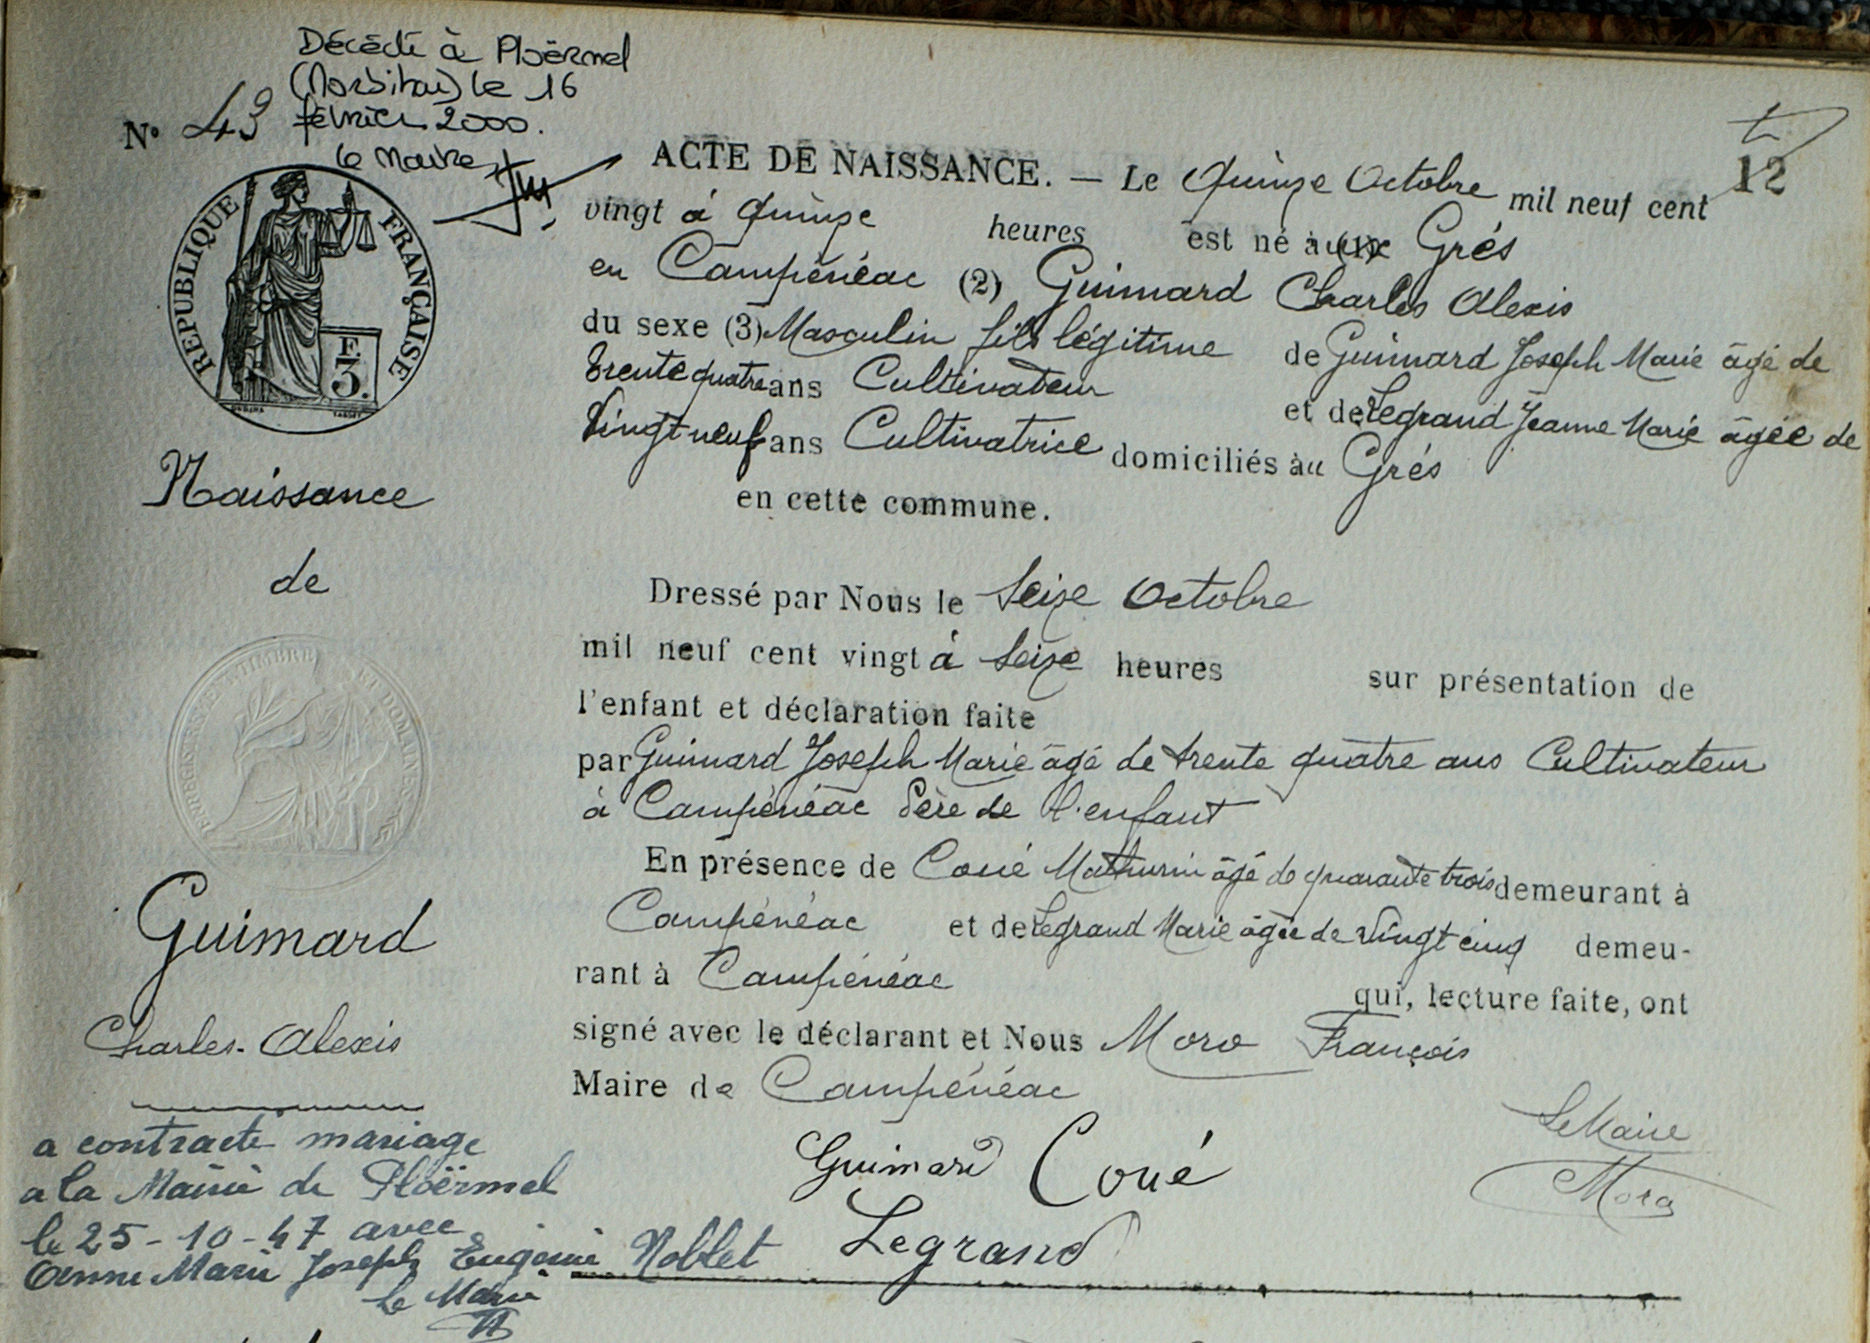 Décédé à Ploërmel
(Morbihan) le 16
février 2000.
le Maire
N° 43
12
RÉPUBLIQUE FRANÇAISE
F.
3.
ACTE DE NAISSANCE. — Le quinze Octobre mil neuf cent
vingt à quinze heures est né au (1) Grés
en Campénéac (2) Guimard Charles Alexis
du sexe (3) Masculin fils légitime de Guimard Joseph Marie âgé de
trente quatre ans Cultivateur et de Legrand Jeanne Marie âgée de
Vingt neuf ans Cultivatrice domiciliés au Grés
en cette commune.
Dressé par Nous le Seize Octobre
mil neuf cent vingt à seize heures sur présentation de
l'enfant et déclaration faite
par Guimard Joseph Marie âgé de trente quatre ans Cultivateur
à Campénéac Père de l'enfant
En présence de Coué Mathurin âgé de quarante trois demeurant à
Campénéac et de Legrand Marie âgée de Vingt cinq demeu-
rant à Campénéac qui, lecture faite, ont
signé avec le déclarant et Nous Moro François
Maire de Campénéac
Guimard Coué
Legrand
Le Maire
Moro
Naissance
de
Guimard
Charles-Alexis
a contracté mariage
a la Mairie de Ploërmel
le 25-10-47 avec
Anne Marie Joseph Eugénie Noblet
le Maire